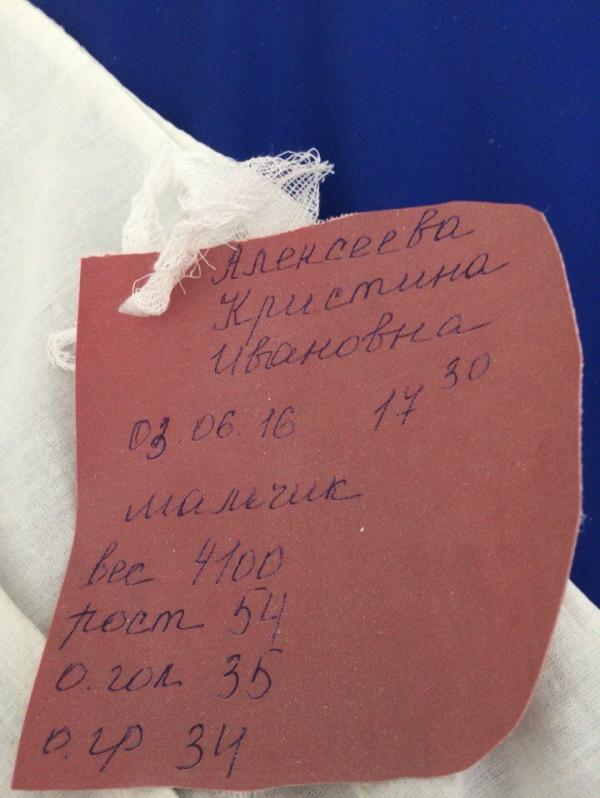 Алексеева
Кристина
Ивановна
03.06.16 17 30
мальчик
вес 4100
рост 54
о.гол 35
о.гр 34